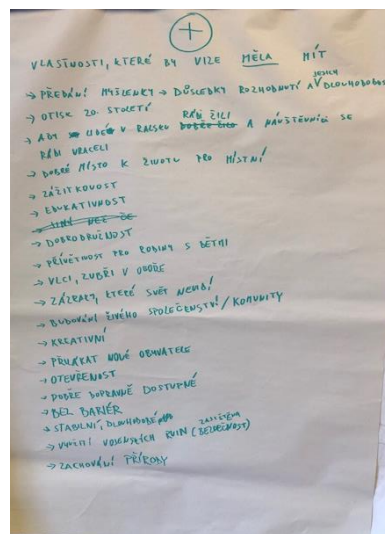 +
VLASTNOSTI, KTERÉ BY VIZE MĚLA MÍT
→ PŘEDÁNÍ MYŠLENKY → DŮSLEDKY ROZHODNUTÍ A JEJICH DLOUHODOBOST
→ OTISK 20. STOLETÍ
→ ABY LIDÉ V RALSKU RÁDI ŽILI A NÁVŠTĚVNÍCI SE
RÁDI VRACELI
→ DOBRÉ MÍSTO K ŽIVOTU PRO MÍSTNÍ
→ ZÁŽITKOVOST
→ EDUKATIVNOST
→ DOBRODRUŽNOST
→ PŘÍVĚTIVOST PRO RODINY S DĚTMI
→ VLCI, ZUBŘI V OBOŘE
→ ZÁZRAKY, KTERÉ SVĚT NEVIDĚL
→ BUDOVÁNÍ ŽIVÉHO SPOLEČENSTVÍ / KOMUNITY
→ KREATIVNÍ
→ PŘILÁKAT NOVÉ OBYVATELE
→ OTEVŘENOST
→ DOBŘE DOPRAVNĚ DOSTUPNÉ
→ BEZ BARIÉR
→ STABILNÍ, DLOUHODOBÉ
→ VYUŽITÍ VOJENSKÝCH RUIN (BEZPEČNOST)
→ ZACHOVÁNÍ PŘÍRODY